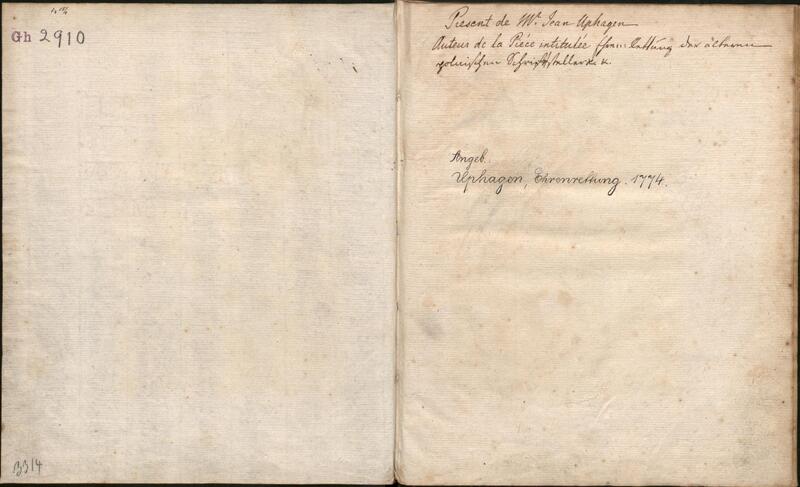 Gh 2910
1314
Present de Mr. Jean Uphagen
Auteur de la Piéce intitulée Ehrenrettung der älteren
polnischen Schriftsteller
Angeb.
Uphagen, Ehrenrettung. 1774.